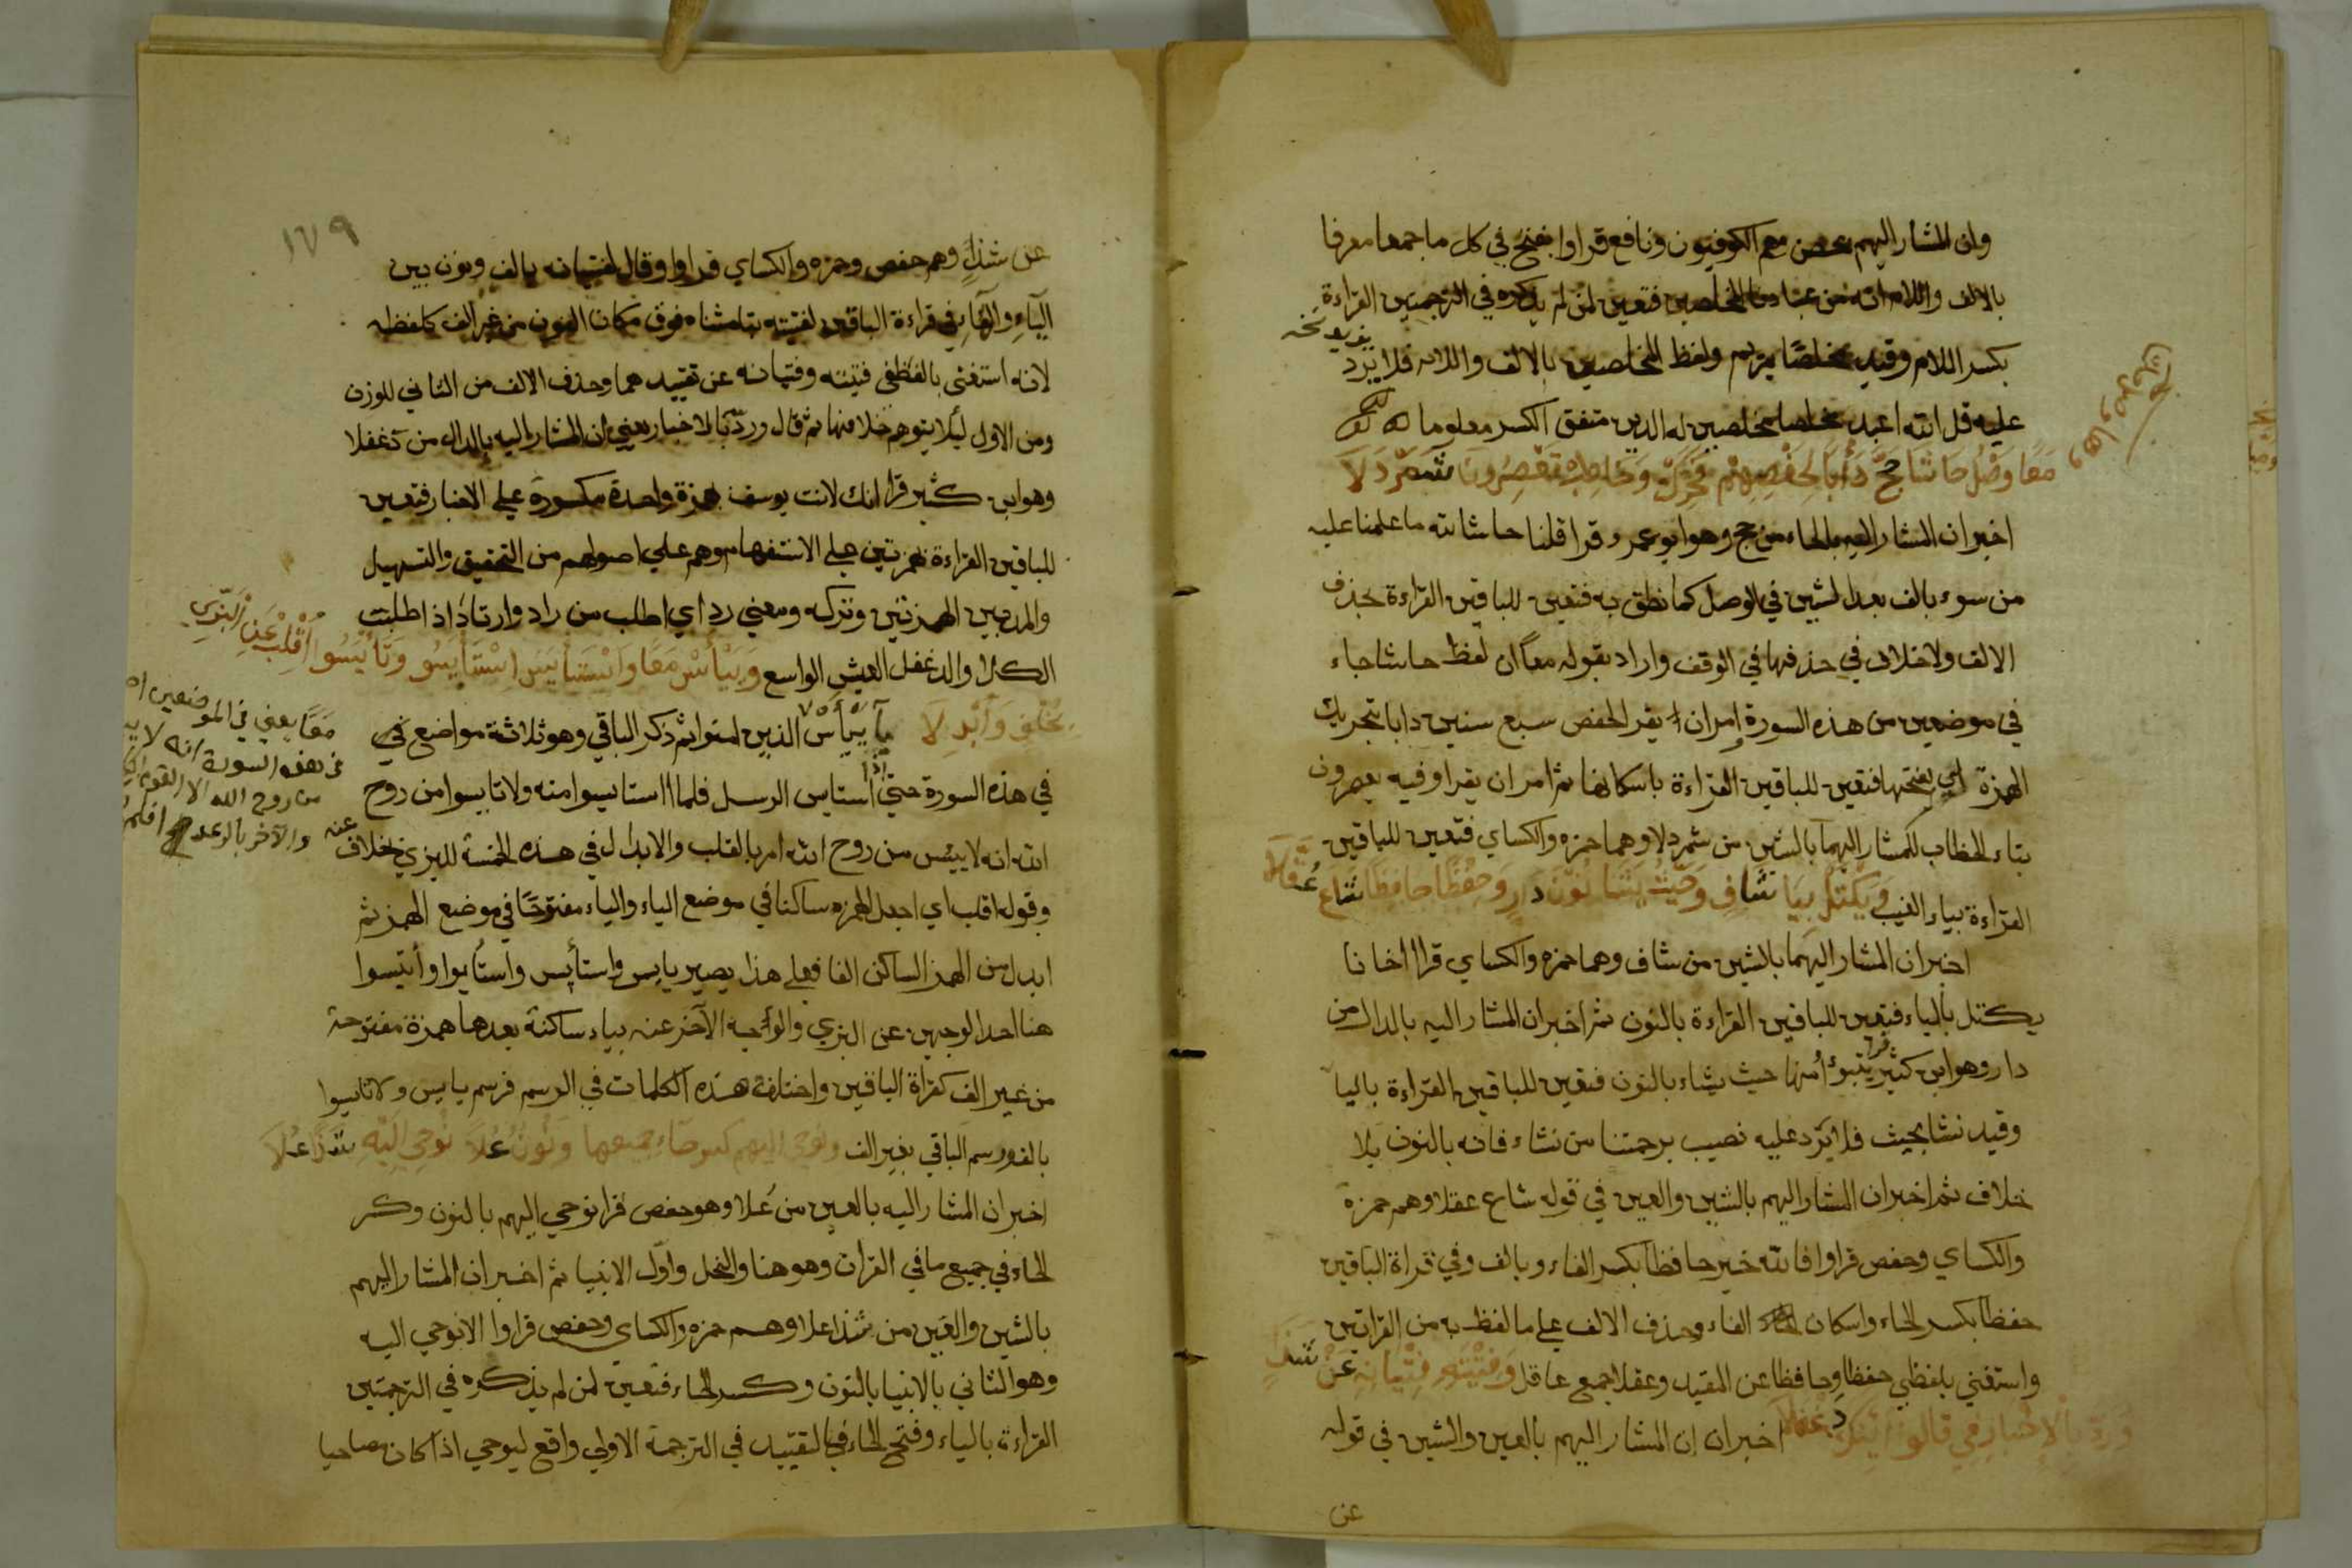 وان المشار اليهم بحصن هم الكوفيون ونافع قراوا بفتح في كل ما جمعا معرفا
بالالف واللام انه من عبادنا المخلصين فتعين لمن لم يذكره في الترجمتين القراءة
بكسر اللام وقيد مخلصا بمريم ولفظ المخلصين بالالف واللام فلا يرد
عليه قل الله اعبد مخلصا مخلصين له الدين متفق الكسر معلوما
مَعًا وَصْلُ حَاشَا حَجَّ دَأْبًا لِحَفْصِهِمْ فَحَرِّكْ وَخَاطِبْ تَعْصِرُونَ شَمَرْدَلَا
اخبران المشار اليه بالحاء من حج وهو ابو عمرو قرا قلنا حاشا لله ما علمنا عليه
من سوء بالف بعد الشين في الوصل كما نطق به فتعين للباقين القراءة بحذف
الالف ولا خلاف في حذفها في الوقف واراد بقوله معا ان لفظ حاشا جاء
في موضعين من هذه السورة امران يقرا لحفص سبع سنين دابا بتحريك
الهمزة اي بفتحها فتعين للباقين القراءة باسكانها ثم امر ان يقرا وفيه يعصرون
بتاء الخطاب للمشار اليهما بالشين من شمردلا وهما حمزه والكساي فتعين للباقين
القراءة بياء الغيب وَيَكْتَلْ بِيَا شَافٍ وَحَيْثُ يَشَا نُونُ دَارٍ وَحِفْظًا حَافِظًا شَاعَ عُقَّلَا
اخبران المشار اليهما بالشين من شاف وهما حمزه والكساي قراا اخانا
يكتل بالياء فتعين للباقين القراءة بالنون ثم اخبران المشار اليه بالدال من
دار وهو ابن كثير قرا يتبوأ منها حيث يشاء بالنون فتعين للباقين القراءة باليا
وقيد نشا بحيث فلا يرد عليه نصيب برحمتنا من نشاء فانه بالنون بلا
خلاف ثم اخبران المشار اليهم بالشين والعين في قوله شاع عقلا وهم حمزة
والكساي وحفص قراوا فالله خير حافظا بكسر الفاء وبالف وفي قراة الباقين
حفظا بكسر الحاء واسكان الفاء وحذف الالف على ما لفظ به من القراتين
واستغني بلفظي حفظا وحافظا عن التقيد وعقلا جمع عاقل وَفِتْيَتِهِ فِتْيَانِهِ عَنْ شَذٍ
وَرُدْ بِالْإِخْبَارِ فِي قَالُوا أَئِنَّكَ دَغْفَلَا اخبران ان المشار اليهم بالعين والشين في قوله
عن
١٧٩
عن شذا وهم حفص وحمزه والكساي قراوا وقال لفتيانه بالف ونون بين
الياء والهاء في قراءة الباقين لفتيته بتاء مثناه فوق مكان النون من غير الف كلفظه
لانه استغنى بالفظي فتيته وفتيانه عن تقييدهما وحذف الالف من الثاني للوزن
ومن الاول ليلا يتوهم خلافها ثم قال ورد بالاخبار يعني ان المشار اليه بالدال من دغفلا
وهو ابن كثير قرا انك لانت يوسف بهمزة واحدة مكسورة على الاخبار فتعين
للباقين القراءة بهمزتين على الاستفهام وهم على اصولهم من التحقيق والتسهيل
والمد بين الهمزتين وتركه ومعني رد اي اطلب من راد وارتاد اذا طلبت
الكلا والدغفل العيش الواسع وَيَيْأَسْ مَعًا وَاسْتَيْأَسَ اسْتَيْأَسُوا وَتَيْأَسُوا اقْلِبْ عَنِ الْبَزِّي
بِخُلْفٍ وَأَبْدِلَا يأييأس الذين امنوا ثم ذكر الباقي وهو ثلاثة مواضع في
في هذه السورة حتي اذا استاس الرسل فلما استايسوا منه ولا تايسوا من روح
الله انه لاييئس من روح الله امر بالقلب والابدال في هذه الخمسة للبزي بخلاف عنه
وقوله اقلب اي اجعل الهمزه ساكنا في موضع الياء والياء مفتوحا في موضع الهمز ثم
ابدل من الهمز الساكن الفا فعلى هذا يصير يايس واستأيس واستأيوا وأتيسوا
هنا احد الوجهين عن البزي والوجه الآخر عنه بياء ساكنة بعدها همزة مفتوحة
من غير الف كقراة الباقين واختلفت هذه الكلمات في الرسم فرسم يايس ولا تايسوا
بالف ورسم الباقي بغير الف وَنُوحِي إِلَيْهِمْ كَسْرُ حَاءٍ جَمِيعِهَا وَنُونٌ عُلَا نُوحِي إِلَيْهِ شَذًا عَلَا
اخبران المشار اليه بالعين من علا وهو حفص قرا نوحي اليهم بالنون وكسر
الحاء في جميع ما في القران وهو هنا والنحل واول الانبيا ثم اخبران المشار اليهم
بالشين والعين من شذا علا وهم حمزه والكساي وحفص قراوا الا نوحي اليه
وهو الثاني بالانبيا بالنون وكسر الحاء فتعين لمن لم يذكره في الترجمتين
القراءة بالياء وفتح الحاء في التقييد في الترجمة الاولي واقع ليوحي اذا كان مصاحبا
مَعًا يعني في الموضعين
في هذه السورة انه لا
من روح الله الا القوم
والآخر بالرعد افلم